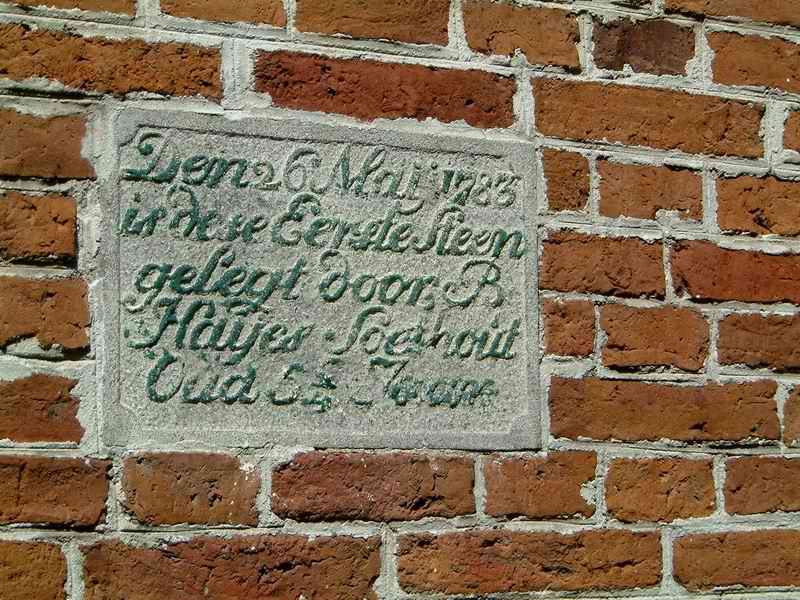 Den 26 Maij 1783
is deze Eerste Steen
gelegt door P.
Haijes Soethout
Oud 5½ Jaar